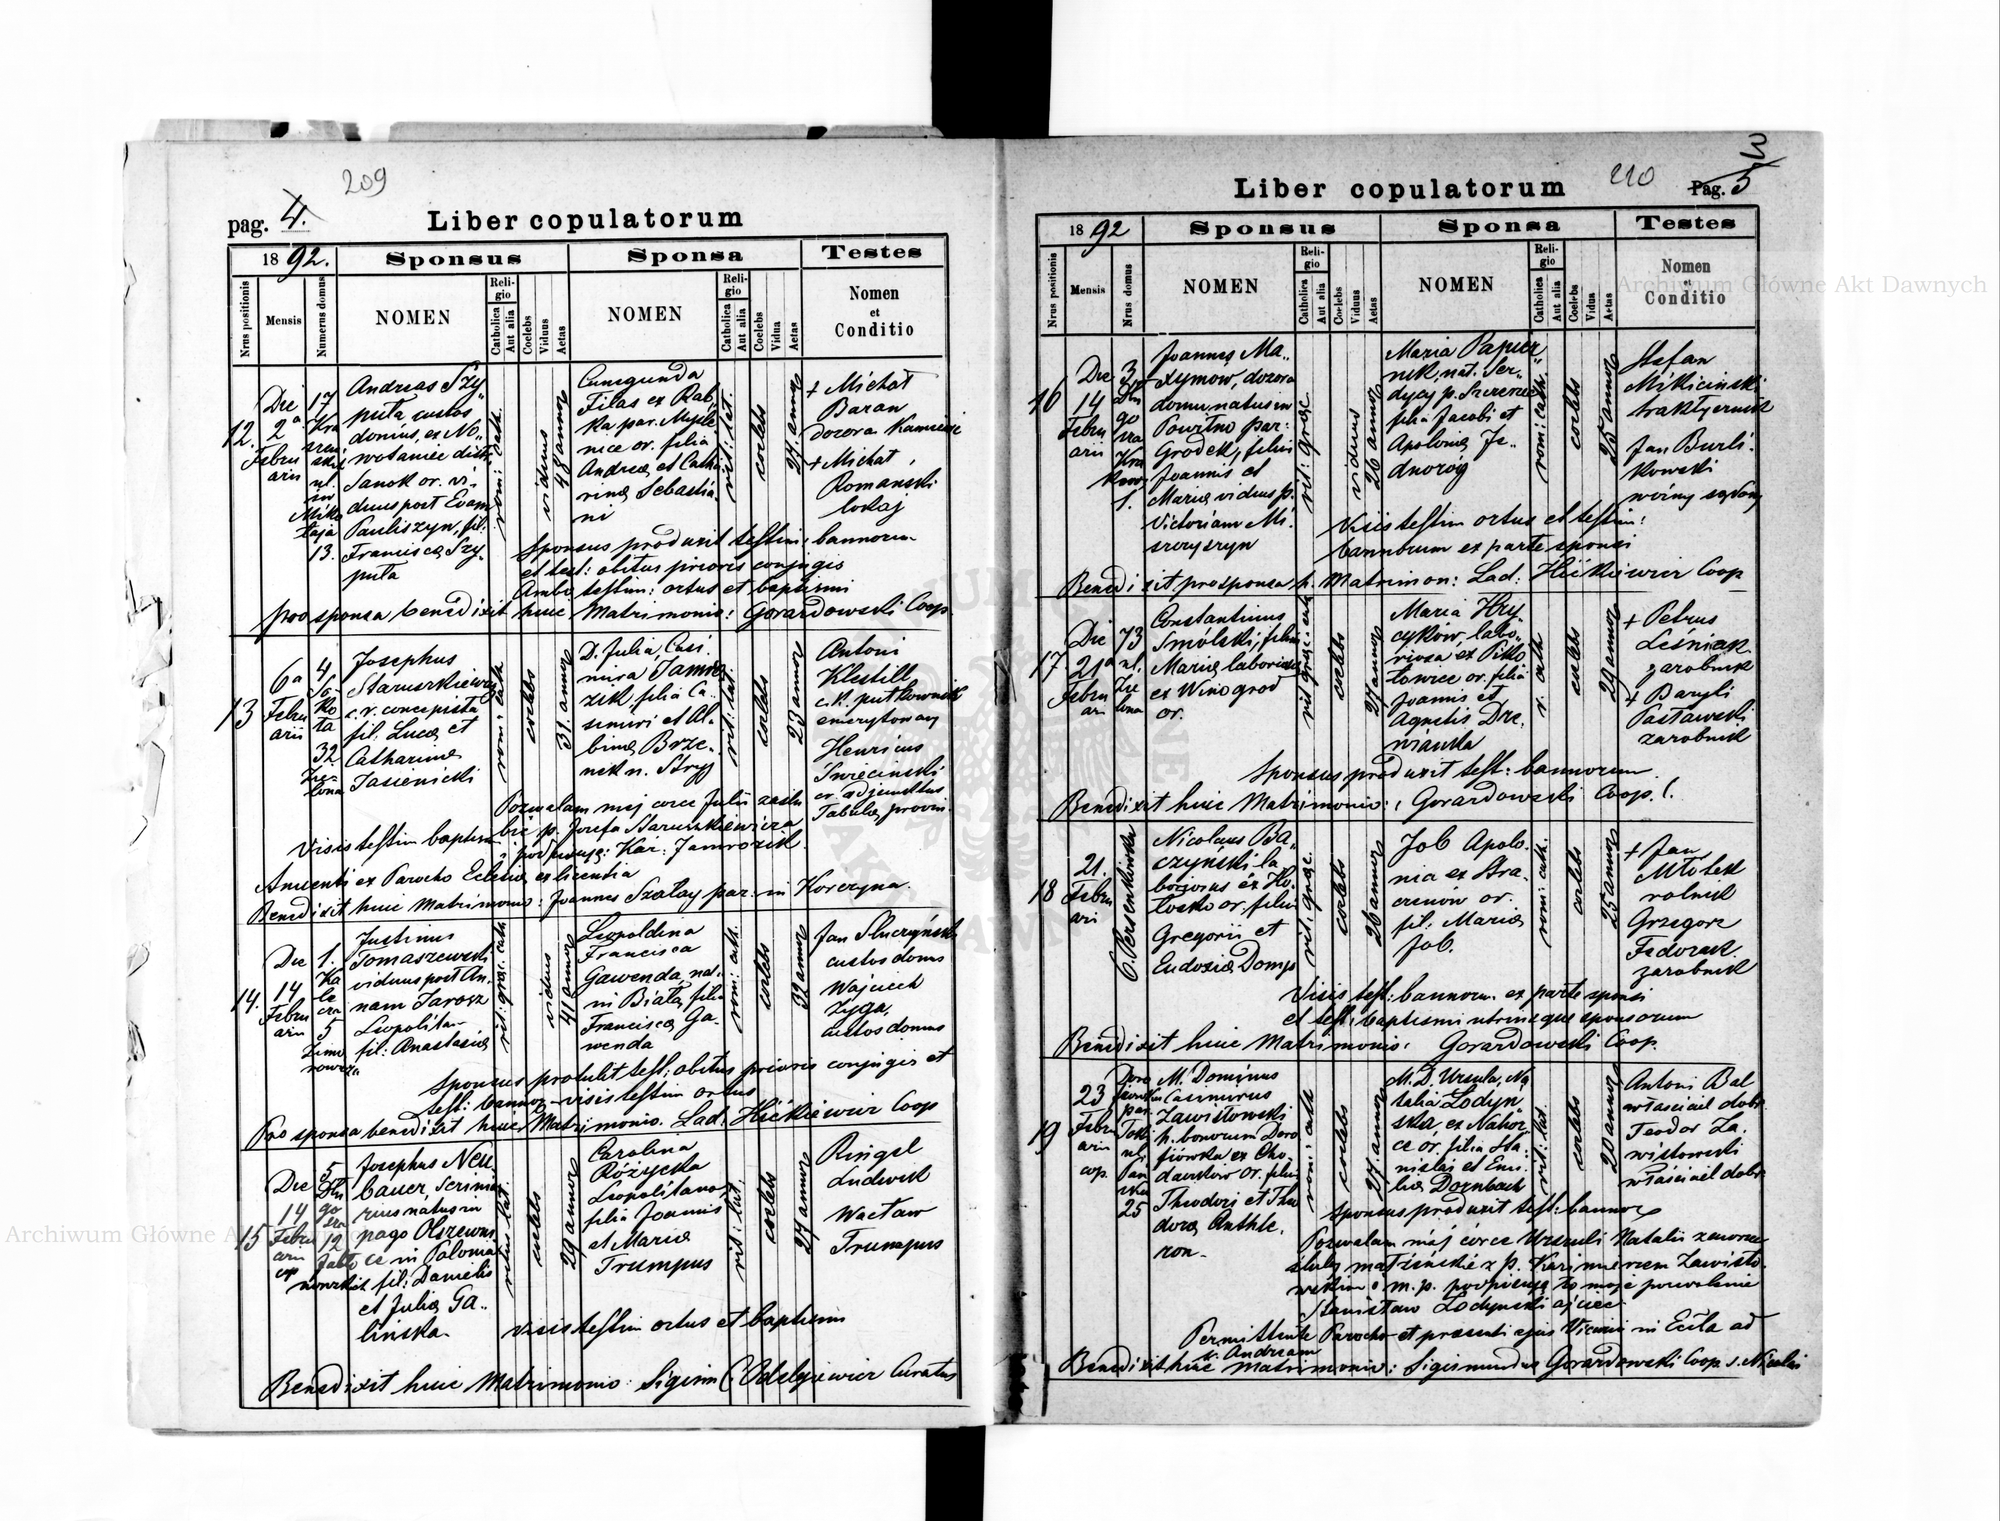 209
pag. 4.
Liber copulatorum
1892.
Sponsus
Sponsa
Testes
Nrus positionis
Mensis
Numerus domus
NOMEN
Religio
Catholica
Aut alia
Coelebs
Viduus
Aetas
NOMEN
Religio
Catholica
Aut alia
Coelebs
Vidua
Aetas
Nomen
et
Conditio
12.
Die
2a
Febru
arii
17
ul.
Miko
łaja
13.
Andreas Szy
puła custos
domus, ex No
wotaniec distr
Sanok or. vi
duus post Evam
Pauliszyn, fil.
Francisca Szy
puła
rom: cath.
viduus
48 annor
Cunegunda
Filas ex Rab
ka par. Myśle
nice or. filia
Andrea et Catha
rina Sebastia
ni
rit: lat.
coelebs
27. annor
+ Michał
Baran
dozorca kamienic
+ Michał
Romanski
lokaj
Sponsus produxit testim: bannorum
et test: obitus prioris conjugis
Ambo testim: ortus et baptismi
pro sponsa benedixit huic Matrimonio: Gorazdowski Coop.
13
6a
Febru
arii
4
So
ko
ła
32.
Zie
lona
Josephus
Staruszkiewicz
c. r. concepista
fil. Luca et
Catharina
Jasienicki
rom: cath
coelebs
31. annor
D. Julia, Casi
mira Jamro
zik, filia Ca
simiri et Al
bina Brze
nik n. Stryj
rit: lat.
coelebs
23 annor
Antoni
Klestill
c. k. pułkownik
emerytowany
Henricus
Święcinski
cr. adjunctus
Tabula provin.
Pozwalam mej córce Julii zaślu
bić p. Józefa Staruszkiewicza
Visis testim baptism
i podpisuję: Kaz: Jamrozik.
Annuenti ex Parocho Eclesia ex licentia
Benedixit huic Matrimonio: Joannes Szałay par. in Korczyna.
14.
Die
14
Febru
arii
1.
Ka
le
cza
5
Zimo
rowicz
Justinus
Tomaszewski
viduus post An
nam Jarosz
Leopolita
fil: Anastasia
rit: graec. cath
viduus
41 annor
Leopoldina
Francisca
Gawenda, nat.
in Biała, filia
Francisca Ga
wenda
rom: cath.
coelebs
32 annor
Jan Słuczyński
custos domus
Wojciech
Zyga,
custos domus
Sponsus protulit test: obitus prioris conjugis et
test: bannor – visis testim ortus
Pro sponsa benedixit huic Matrimonio. Lad: Hićkiewicz Coop
15
Die
14
Febru
arii
cop
5
Dłu
go
sza
12
Jabło
nowskich
Josephus Neu
bauer, scrinia
rius natus in
pago Olszewni
ca in Polonia
fil: Danielis
et Julia Ga
lińska.
ritus lat.
coelebs
29 annor
Carolina
Różycka
Leopolitana,
filia Joannis
et Maria
Trumpus
rit: lat.
coelebs
27 annor
Ringel
Ludwik
Wacław
Trumpus
Visis testim ortus et baptismi
Benedixit huic Matrimonio: Sigism Odelgiewicz Curatus
210
Liber copulatorum
Pag. 5
1892
Sponsus
Sponsa
Testes
Nrus positionis
Mensis
Nrus domus
NOMEN
Religio
Catholica
Aut alia
Coelebs
Viduus
Aetas
NOMEN
Religio
Catholica
Aut alia
Coelebs
Vidua
Aetas
Nomen
et
Conditio
16
Die
14
Febru
arii
3
Dłu
go
sza
Kra
kow.
1.
Joannes Ma
xymow, dozorca
domu natus in
Powitno par:
Gródek, filius
Joannis et
Maria viduus p.
Victoriam Mi
szczyszyn
rit: graec
viduus
26 annor
Maria Papier
nik, nat. Ser
dycy p. Szczerzec
filia Jacobi et
Apolonia Je
dnoróg
rom: cath.
coelebs
25 annor
Stefan
Mikicinski
traktyernik
Jan Burli
kowski
woźny sądowy
Visis testim ortus et testim:
bannorum ex parte sponsi
Benedixit pro sponsa h. Matrimon: Lad: Hićkiewicz Coop
17.
Die
21a
Febru
arii
73
ul.
Zie
lona
Constantinus
Smólski, filius
Maria laboriosa
ex Winograd
or.
rit: graec: cath
coelebs
27 annor
Maria Hry
cyków, labo
riosa ex Piko
łowice or. filia
Joannis et
Agnetis Dre
wianka
r. cath
coelebs
29 annor
+ Petrus
Leśniak
zarobnik
+ Baryli
Pasławski
zarobnik
Sponsus produxit test: bannorum
Benedixit huic Matrimonio: Gorazdowski Coop.
18
21.
Febru
arii
6. Persenkówka
Nicolaus Ba
czyński la
boriosus ex Ho
łosko or. filius
Gregorii et
Eudoxia Domys
rit: graec.
coelebs
26 annor
Job Apolo
nia ex Stra
cznow or.
fil: Maria
Job.
rom: cath.
coelebs
25 annor
+ Jan
Młotek
rolnik
Grzegorz
Fedorak
zarobnik
Visis test: bannor. ex parte sponsi
et test: baptismi utriusque sponsorum
Benedixit huic Matrimonio: Gorazdowski Coop.
19
23
Febru
arii
cop.
25
M. Dominus
Casimirus
Zawistowski
h. bonorum Doro
fiówka ex Cho
dawków or. filius
Theodori et Theo
dora Anthle
ron
rom: cath
coelebs
27. annor
M. D. Ursula, Na
talia Lodyn
ska, ex Nahor
ce or. filia Sta
nislai et Emi
lia Dornbach
rit: lat.
coelebs
20 annor
Antoni Bal
właściciel dobr
Teodor Za
wistowski
właściciel dobr
Sponsus produxit test: bannor
Pozwalam mej córce Urszuli Natalii zawrzeć
śluby małżeńskie z p. Kazimierzem Zawisto
wskim i m. p. podpisuję to moje pozwolenie
Stanisław Lodynski ojciec
Permittente Parocho et praesenti ejus Vicarii in Eccla ad
s. Andream
Benedixit huic Matrimonio: Sigismundus Gorazdowski Coop s. Nicolai
Archiwum Główne Akt Dawnych